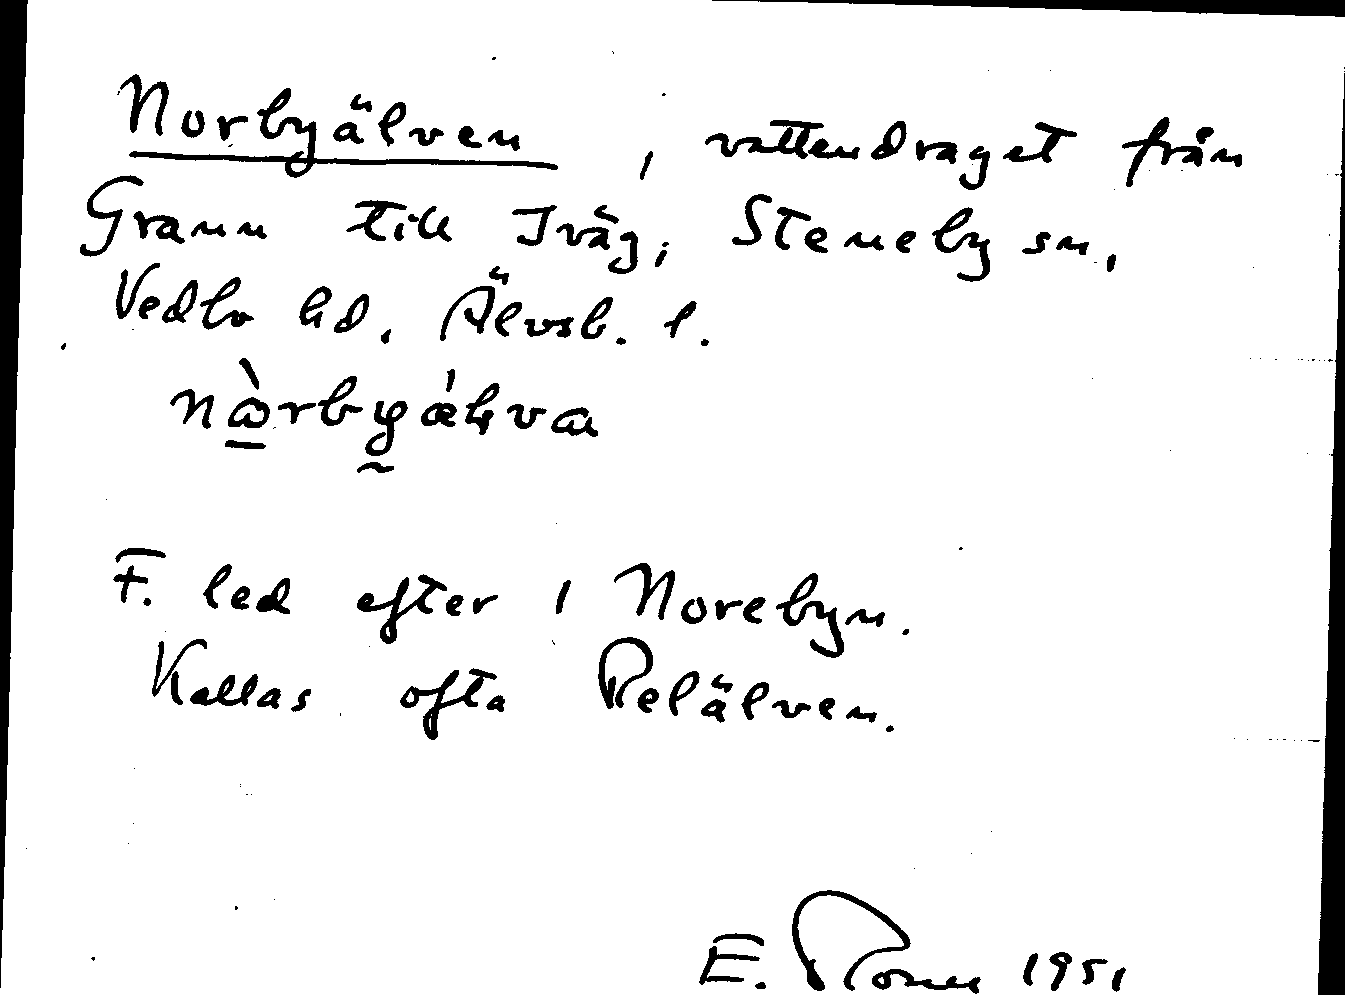 Norbyälven, vattendraget från
Grann till Iväg, Steneby sn,
Vedbo hd, Älvsb. l.
F. led efter 1 Norebyn.
Kallas ofta Relälven.
E. 1951